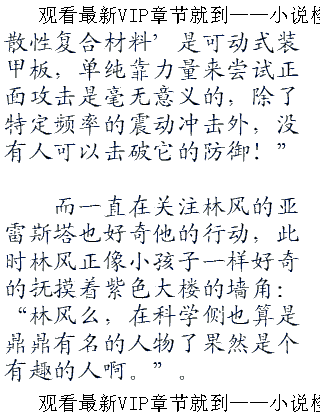 观看最新VIP章节就到——小说
散性复合材料’是可动式装
甲板，单纯靠力量来尝试正
面攻击是毫无意义的，除了
特定频率的震动冲击外，没
有人可以击破它的防御！”
而一直在关注林风的亚
雷斯塔也好奇他的行动，此
时林风正像小孩子一样好奇
的抚摸着紫色大楼的墙角：
“林风么，在科学侧也算是
鼎鼎有名的人物了果然是个
有趣的人啊。”。
观看最新VIP章节就到——小说